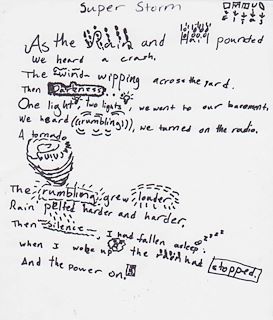 Super Storm
As the Rain and Hail pounded
we heard a crash.
The wind wipping across the yard.
Then Darkness...
One light, two lights, we went to our basement,
We heard ((rumbling!)), we turned on the radio.
A tornado
The rumbling grew louder
Rain pelted harder and harder.
Then Silence, I had fallen asleep. zzzz
when I woke up the rain had stopped.
And the power on